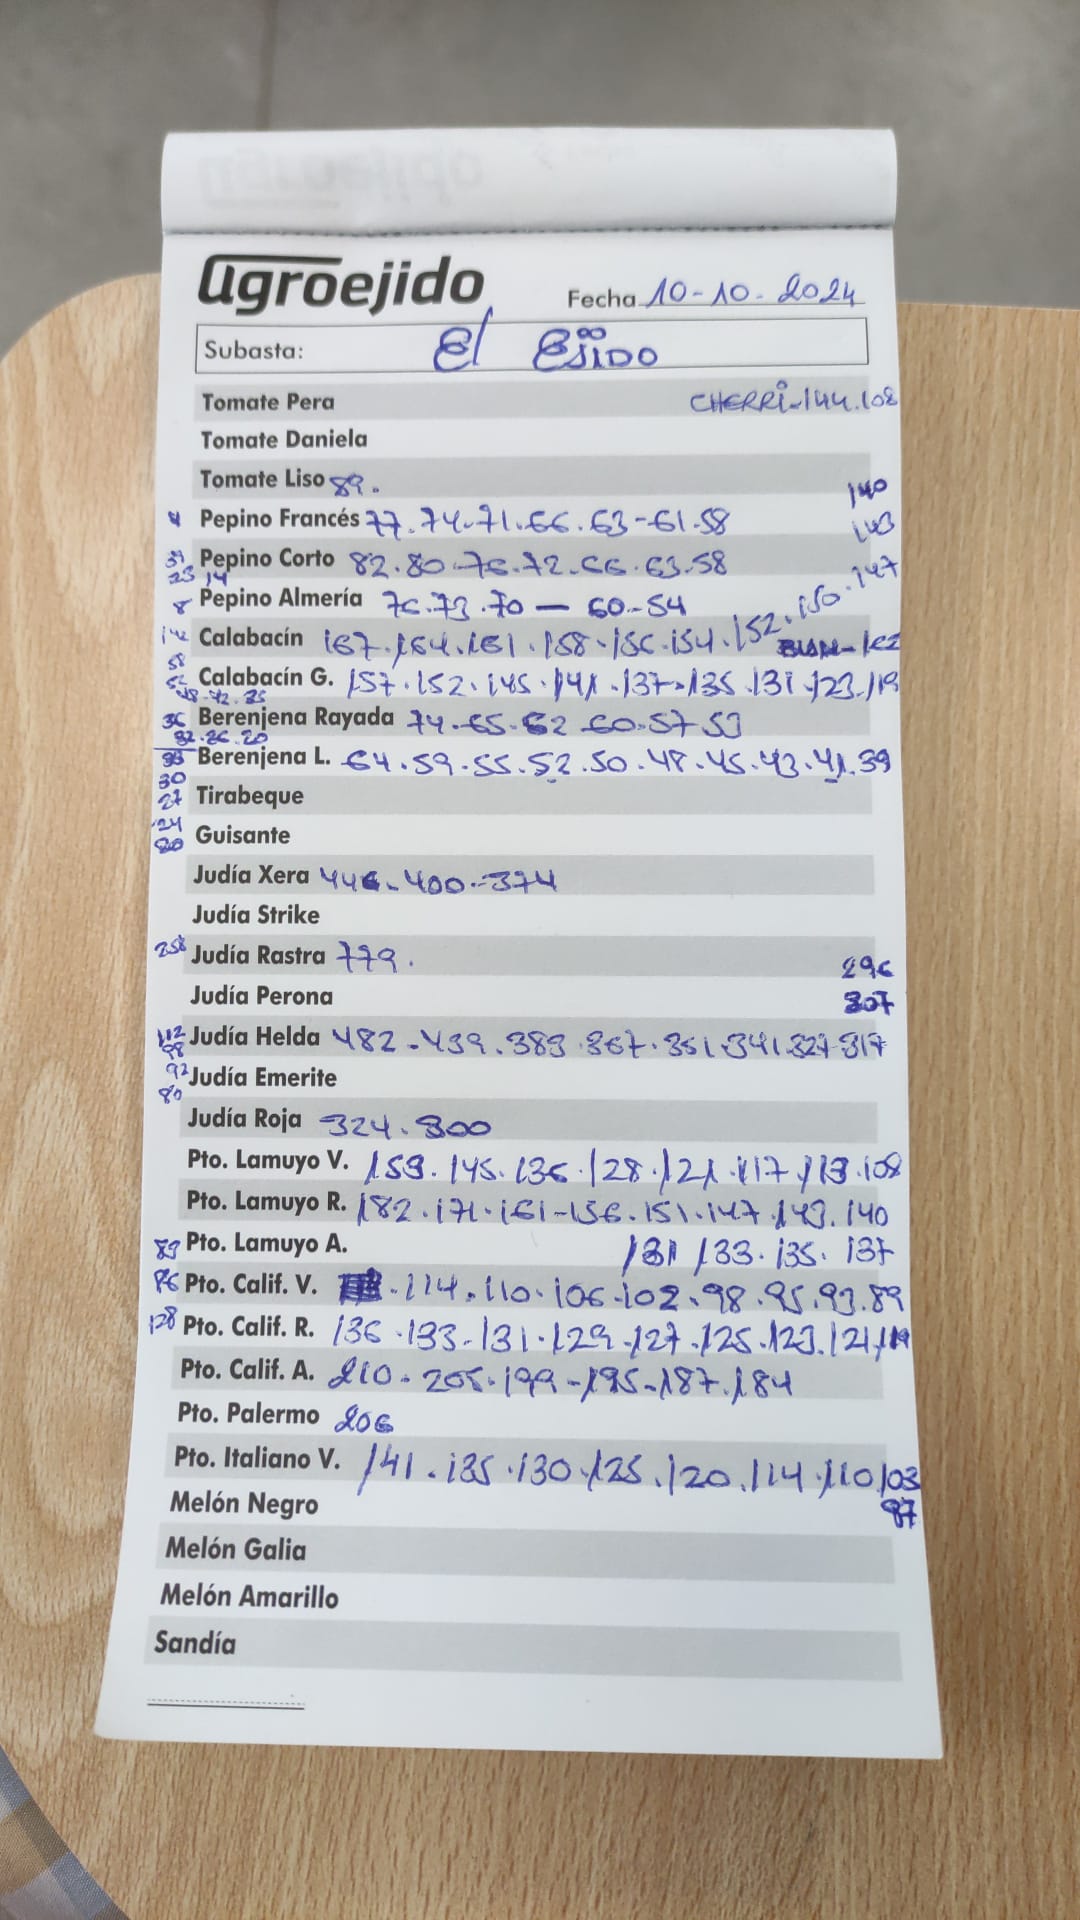 agroejido
Fecha 10-10-2024
Subasta: El Ejido
Tomate Pera CHERRi-144.108
Tomate Daniela
Tomate Liso 89.
140
Pepino Francés 77.74.71.66.63-61.58
143
Pepino Corto 82.80.76.72.66.63.58
23 14
Pepino Almería 76.73.70 — 60-54
8
Calabacín 167.164.161.158.156.154.152.150.147
Calabacín G. 157.152.145.141.137.135.131.123.119
48.42.35
36 Berenjena Rayada 74.65.62.60.57.53
32.26.20
33 Berenjena L. 64.59.55.52.50.48.45.43.41.39
30
27 Tirabeque
24
Guisante
20
Judía Xera 446-400-374
Judía Strike
258 Judía Rastra 779.
296
Judía Perona 307
112 Judía Helda 482-439.383.367.351.341.327.317
98
92 Judía Emerite
80
Judía Roja 324.300
Pto. Lamuyo V. 153.145.136.128.121.117.113.108
Pto. Lamuyo R. 182.171.161-156.151.147.143.140
83 Pto. Lamuyo A. 131 133.135.137
Pto. Calif. V. .114.110.106.102.98.95.93.89
128 Pto. Calif. R. 136.133-131.129.127.125.123.121.119
Pto. Calif. A. 210.205.199-195-187.184
Pto. Palermo 206
Pto. Italiano V. 141.135.130.125.120.114.110.103
Melón Negro 97
Melón Galia
Melón Amarillo
Sandía